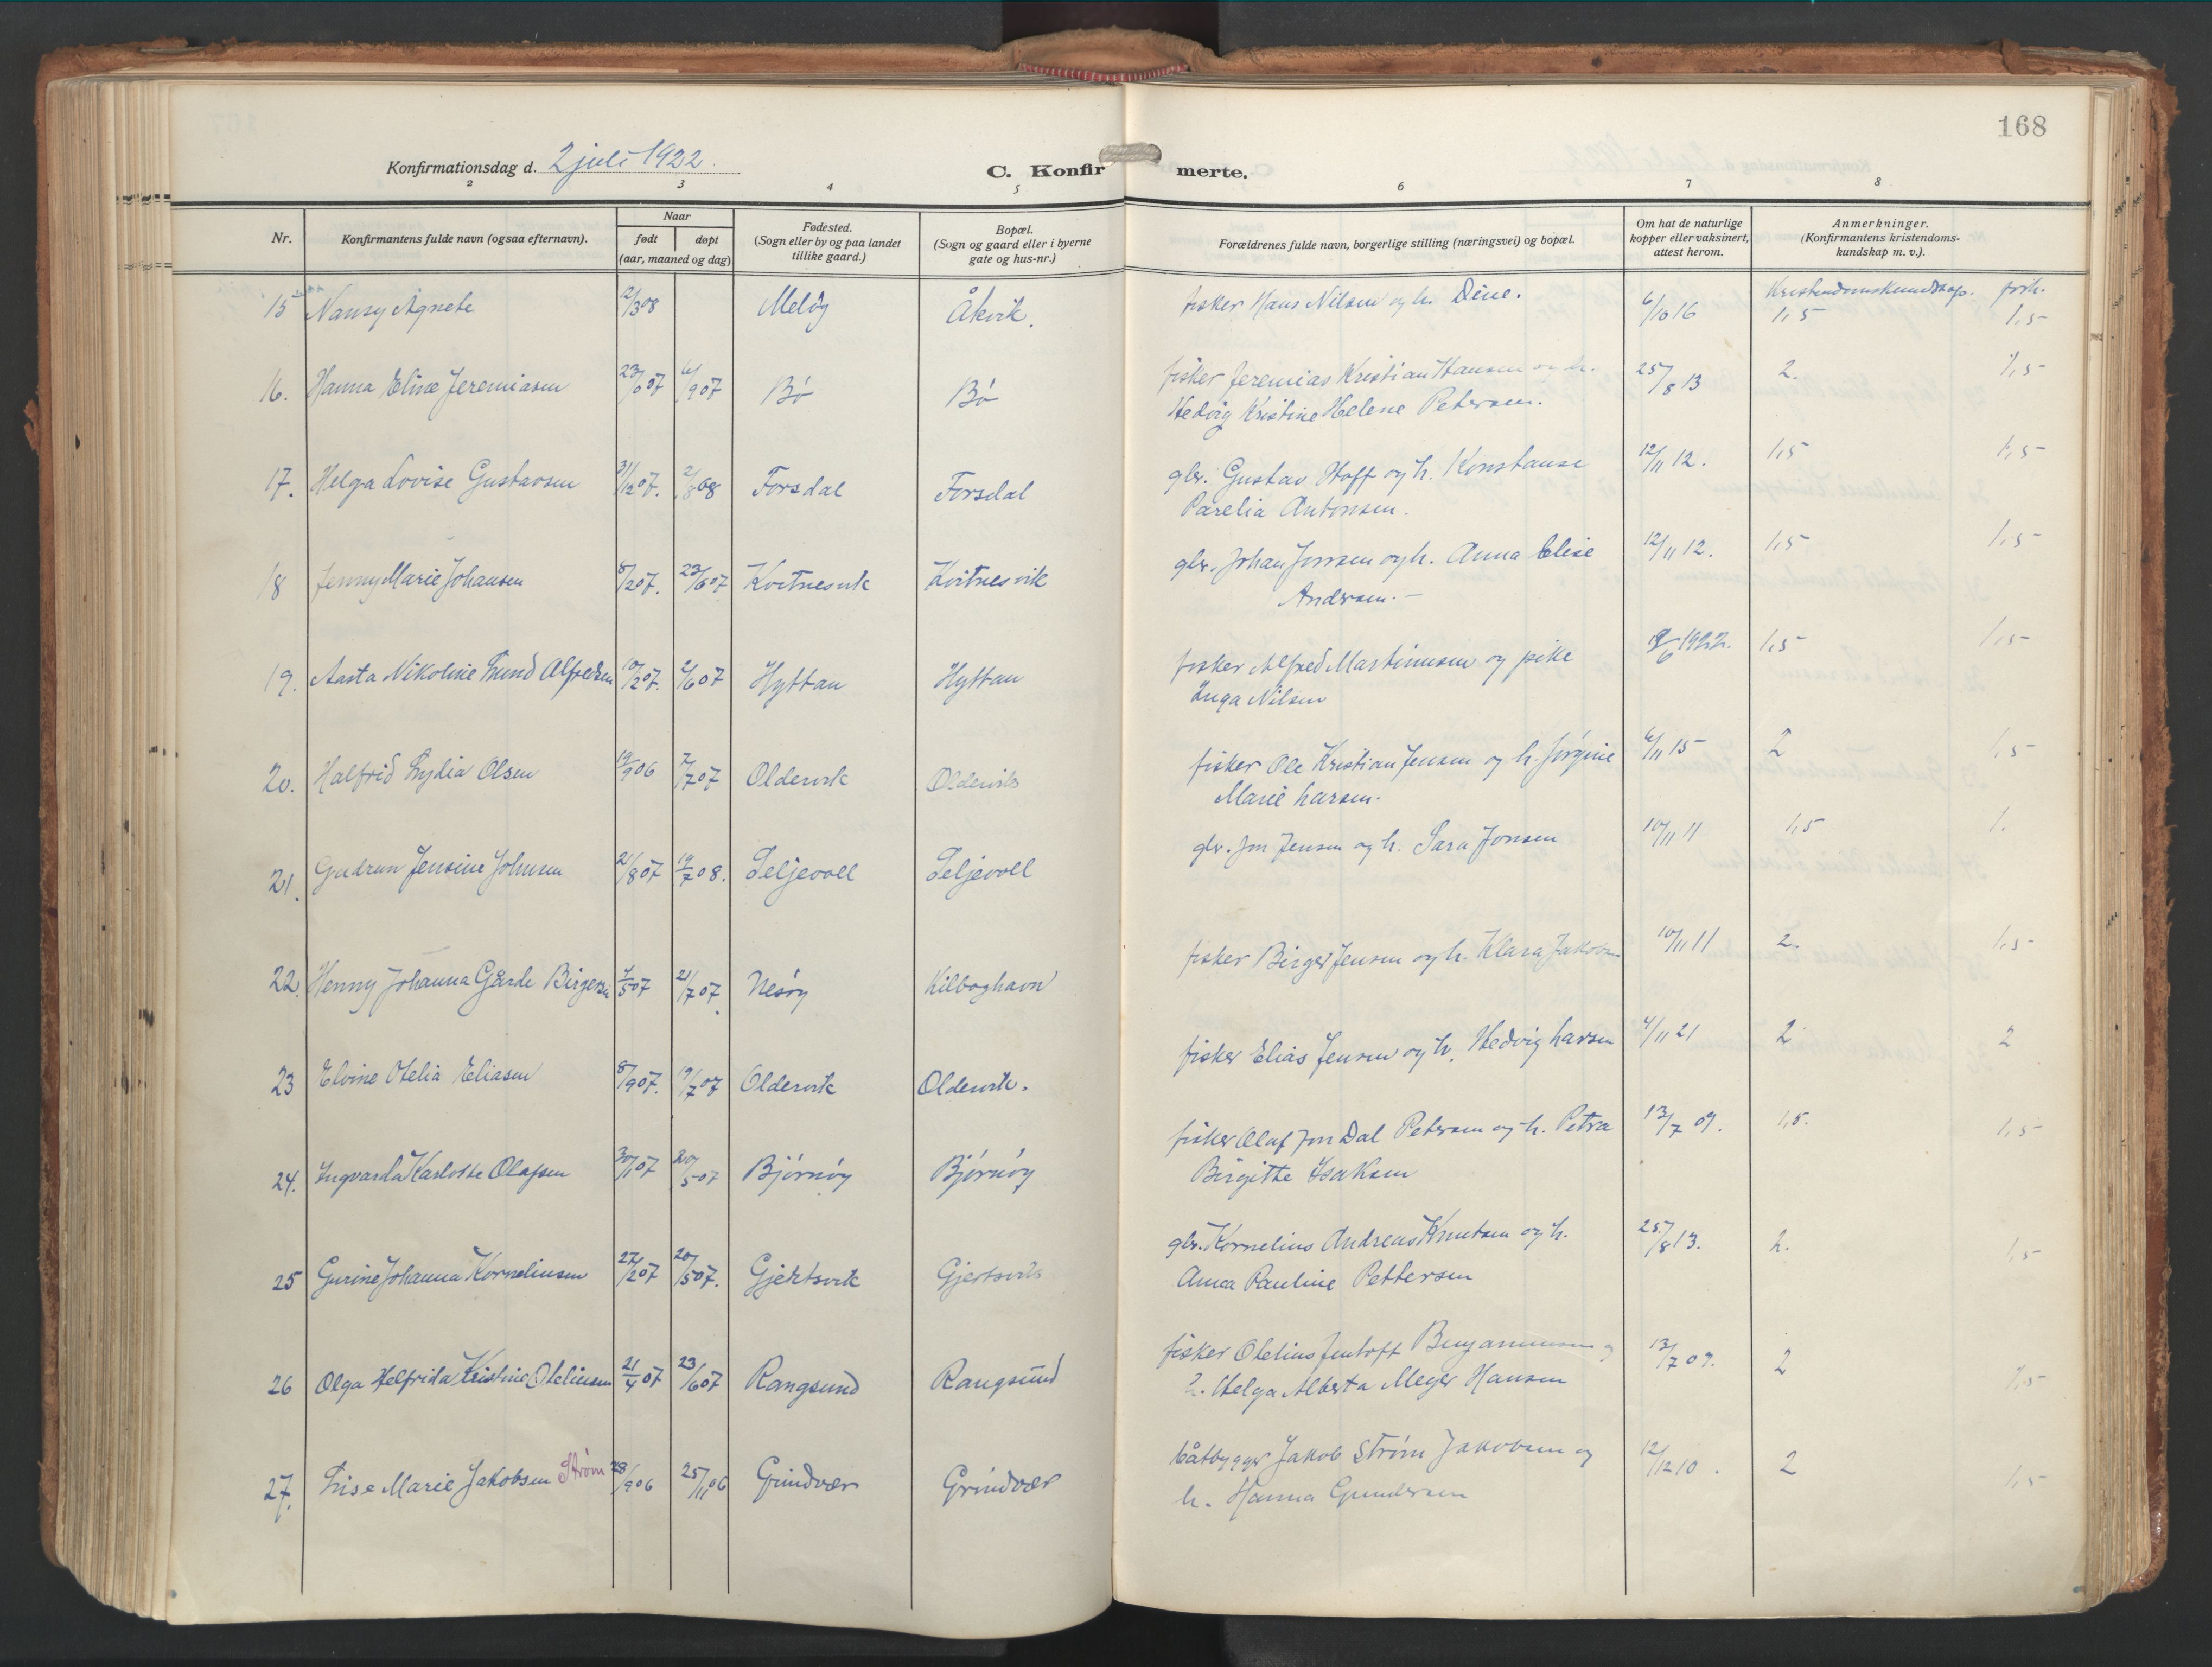 168
Konfirmationsdag d. 2 juli 1922.
C. Konfirmerte.
2 3 4 5 6 7 8
Nr. Konfirmantens fulde navn (ogsaa efternavn). Naar født døpt (aar, maaned og dag) Fødested. (Sogn eller by og paa landet tillike gaard.) Bopæl. (Sogn og gaard eller i byerne gate og hus-nr.) Forældrenes fulde navn, borgerlige stilling (næringsvei) og bopæl. Om hat de naturlige kopper eller vaksinert, attest herom. Anmerkninger. (Konfirmantens kristendoms-kundskap m. v.).
Kristendomskundskap. forh.
15 Nansy Agnete 12/3 08 Meløy Åkvik. fisker Hans Nilsen og h. Dine. 6/10 16 1,5 1,5
16. Hanna Eline Jeremiasen 07 6/9 07 Bø Bø fisker Jeremias Kristian Hansen og h. 25/8 13 2. 1,5
Hedvig Kristine Helene Petersen.
17. Helga Lovise Gustavsen 31/12 07. 2/8 08 Forsdal Forsdal gbr. Gustav Hoff og h. Konstanse 12/11 12. 1,5 1,5
Parelia Antonsen.
18 Jenny Marie Johansen 8/2 07. 23/6 07 Kvitnesvik Kvitnesvik gbr. Johan Jonsen og h. Anna Elise 12/11 12. 1,5 1,5
Andersen. -
19. Aasta Nikoline Lund Alfredsen 10/2 07. 2/6 07 Hyttan Hyttan fisker Alfred Martinusen og pike 1922. 1,5 1,5
Inga Nilsen
20. Halfrid Lydia Olsen 19/9 06 7/7 07 Oldervik Oldervik fisker Ole Kristian Jensen og h. Jørgine 6/11 15 2 1,5
Marie Larsen.
21. Gudrun Jensine Johnsen 21/8 07 19/7 08. Seljevoll Seljevoll gbr. Jon Jensen og h. Sara Jonsen 10/11 11 1,5 1.
22. Henny Johanna Gærde Birgersen 4/5 07 21/7 07. Nesøy Kilboghavn fisker Birger Jensen og h. Klara Jakobsen 10/11 11 2. 1,5
23 Elvine Otelia Eliasen 8/9 07. Oldervik Oldervik. fisker Elias Jensen og h. Hedvig Larsen 4/11 21 2 2
24. Ingvarda Karlotte Olafsen 30/1 07 20/5 07 Bjørnøy Bjørnøy fisker Olaf Jon Dal Petersen og h. Petra 13/7 09. 1,5. 1,5
Birgitte Isaksen
25 Gurine Johanna Kornelinsen 27/2 07 20/5 07. Gjertsvik Gjertsvik gbr. Kornelius Andreas Knutsen og h. 25/8 13. 2. 1,5
Anna Pauline Pettersen
26 Olga Helfrida Kristine Oteliusen 21/4 07 23/6 07 Rangsund Rangsund fisker Otelius Jentoft Benjaminsen og 13/7 09. 2 1,5
h. Helga Alberta Meyer Hansen
27. Lise Marie Jakobsen Strøm 28/9 06 25/11 06 Grindvær Grindvær båtbygger Jakob Strøm Jakobsen og 12/12 10. 2 1,5
h. Hanna Gundersen